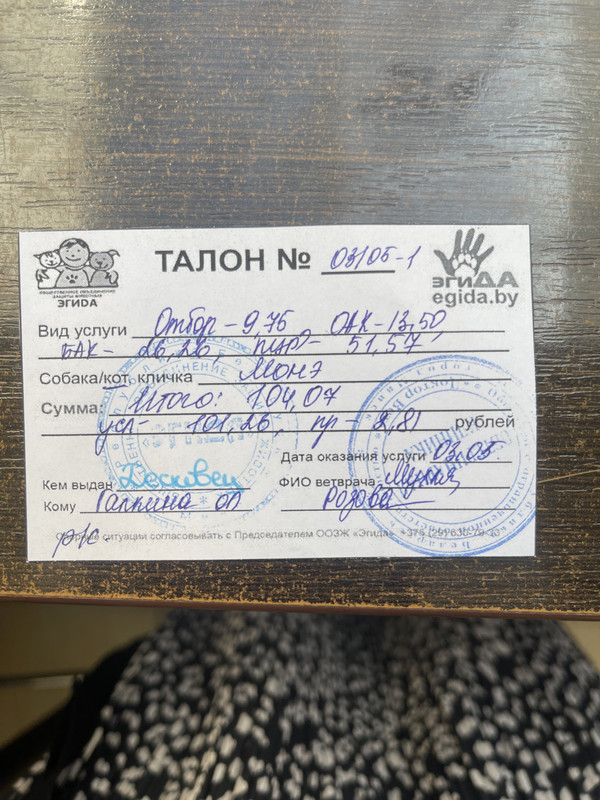 ТАЛОН № 03/05-1
ОБЩЕСТВЕННОЕ ОБЪЕДИНЕНИЕ
ЗАЩИТЫ ЖИВОТНЫХ
ЭГИДА
эгиДА
egida.by
Вид услуги Отбор - 9,75 ОАК - 13,50
БАК - 26,26 ПЦР - 51,57
Собака/кот, кличка Монэ
Сумма: Итого: 104,07
усл - 101,26 пр - 2,81 рублей
Дата оказания услуги 03.05
Кем выдан
ФИО ветврача
Кому Галкина
Розова
Спорные ситуации согласовывать с Председателем ООЗЖ «Эгида»